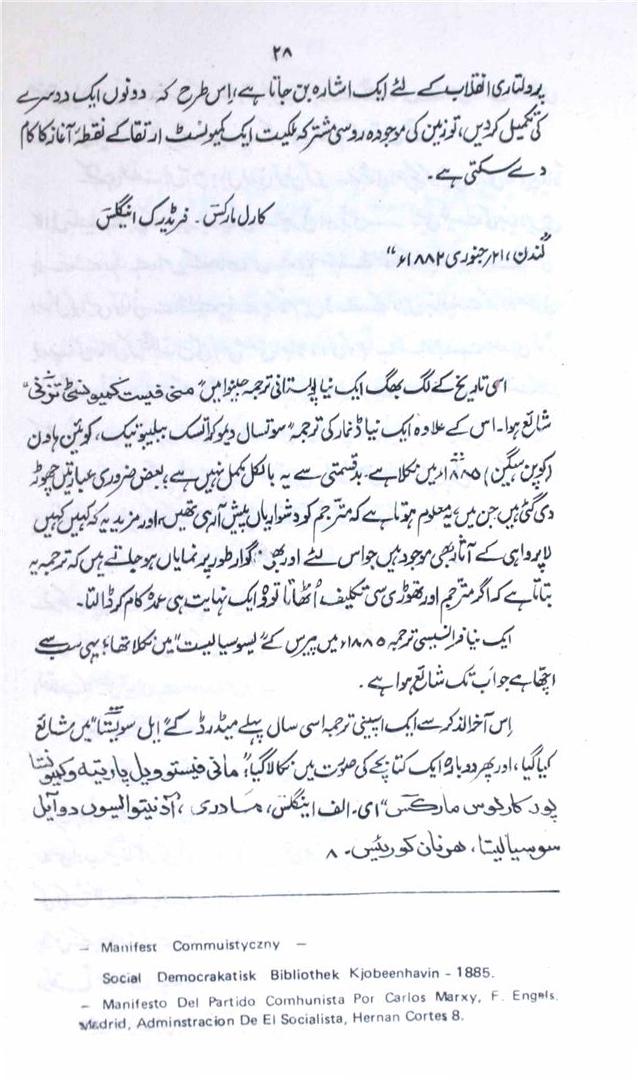 ۲۸
پرولتاری انقلاب کے لئے ایک اشارہ بن جاتا ہے، اِس طرح کہ دونوں ایک دوسرے
کی تکمیل کر دیں، تو زمین کی موجودہ روسی مشترکہ ملکیت ایک کمیونسٹ ارتقا کے نقطۂ آغاز کا کام
دے سکتی ہے۔
کارل مارکس۔ فریڈرک اینگلس
لندن، ۲۱ر جنوری ۱۸۸۲ء“
اسی تاریخ کے لگ بھگ ایک نیا پولستانی ترجمہ جنیوا میں ”منی فیست کمیونسٹچنی“
شائع ہوا۔ اس کے علاوہ ایک نیا ڈنمارکی ترجمہ ”سوتسال دیموکراتسک ببلیوتیک، کوبئین ہاون
(کوپن ہیگن) ۱۸۸۵ء میں نکلا ہے۔ بدقسمتی سے یہ بالکل مکمل نہیں ہے، بعض ضروری عبارتیں چھوڑ
دی گئی ہیں جن میں، یہ معلوم ہوتا ہے کہ مترجم کو دشواریاں پیش آ رہی تھیں، اور مزید یہ کہ کہیں کہیں
لاپرواہی کے آثار بھی موجود ہیں جو اس لئے اور بھی ناگوار طور پر نمایاں ہو جاتے ہیں کہ ترجمہ یہ
بتاتا ہے کہ اگر مترجم اور تھوڑی سی تکلیف اُٹھاتا تو وہ ایک نہایت ہی عمدہ کام کر ڈالتا۔
ایک نیا فرانسیسی ترجمہ ۱۸۸۵ء میں پیرس کے ”لیوسیالیست“ میں نکلا تھا؛ یہی سب سے
اچھا ہے جو اب تک شائع ہوا ہے۔
اِس آخر الذکر سے ایک اسپینی ترجمہ اسی سال پہلے میڈرڈ کے ”ایل سوسیالستا“ میں شائع
کیا گیا، اور پھر دوبارہ ایک کتابچے کی صورت میں نکالا گیا؛ ”مانی فیستو دیل پارتیدو کمیونستا
پور کارلوس مارکس“ ای۔ الف اینگلس، مادری، آدنیتوالسوں دو آیل
سوسیالیتا، ہرنان کورتیس۔ ۸
– Manifest Commuistyczny –
Social Democrakatisk Bibliothek Kjobeenhavin – 1885.
– Manifesto Del Partido Comhunista Por Carlos Marxy, F. Engels.
Madrid, Adminstracion De El Socialista, Hernan Cortes 8.